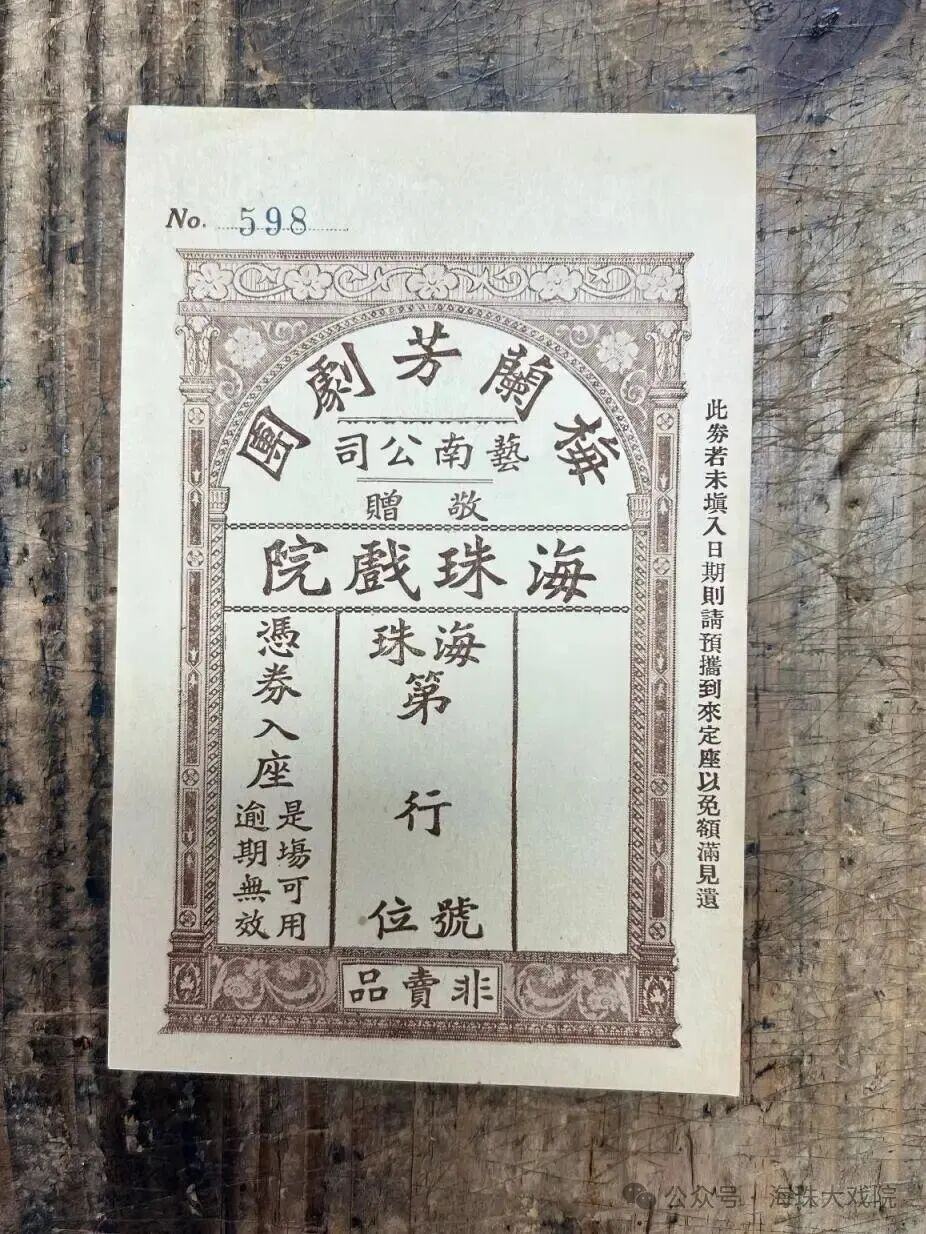 No. 598
梅蘭芳劇團
藝南公司
敬贈
海珠戲院
海珠
第
行
號位
憑券入座
是場可用
逾期無效
非賣品
此券若未塡入日期則請預攜到來定座以免額滿見遺
公众号 · 海珠大戏院